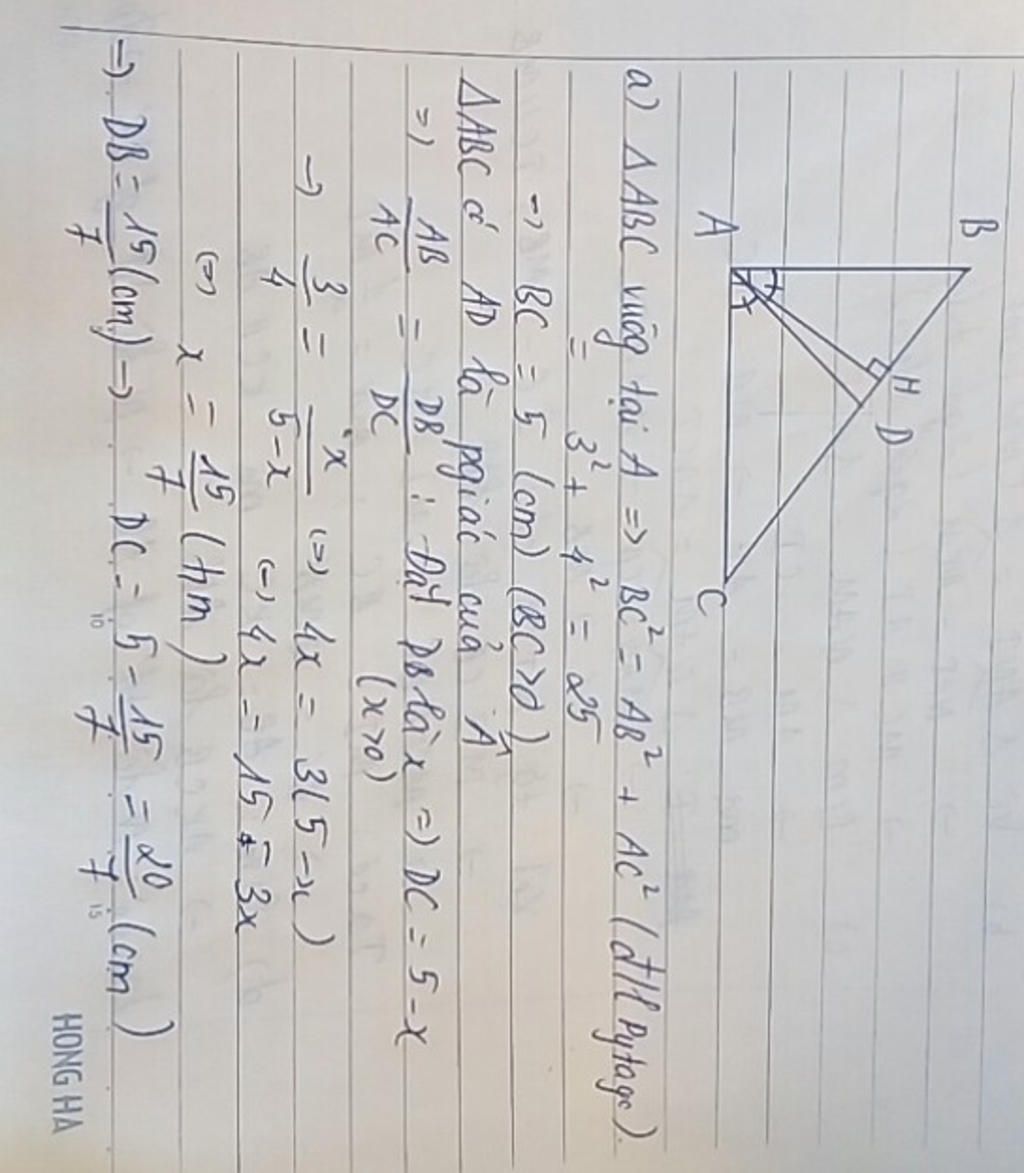 B
H
D
A
C
a) ΔABC vuông tại A => BC² = AB² + AC² (đ/l Pytago).
= 3² + 4² = 25
→ BC = 5 (cm) (BC>0)
ΔABC có AD là pgiác của Â
=> AB/AC = DB/DC ; Đặt DB là x => DC = 5-x
(x>0)
→ 3/4 = x/5-x (=) 4x = 3(5-x)
(=) 4x = 15 - 3x
(=) x = 15/7 (tm)
→ DB = 15/7 (cm) → DC = 5 - 15/7 = 20/7 (cm)
10 15
HONG HA